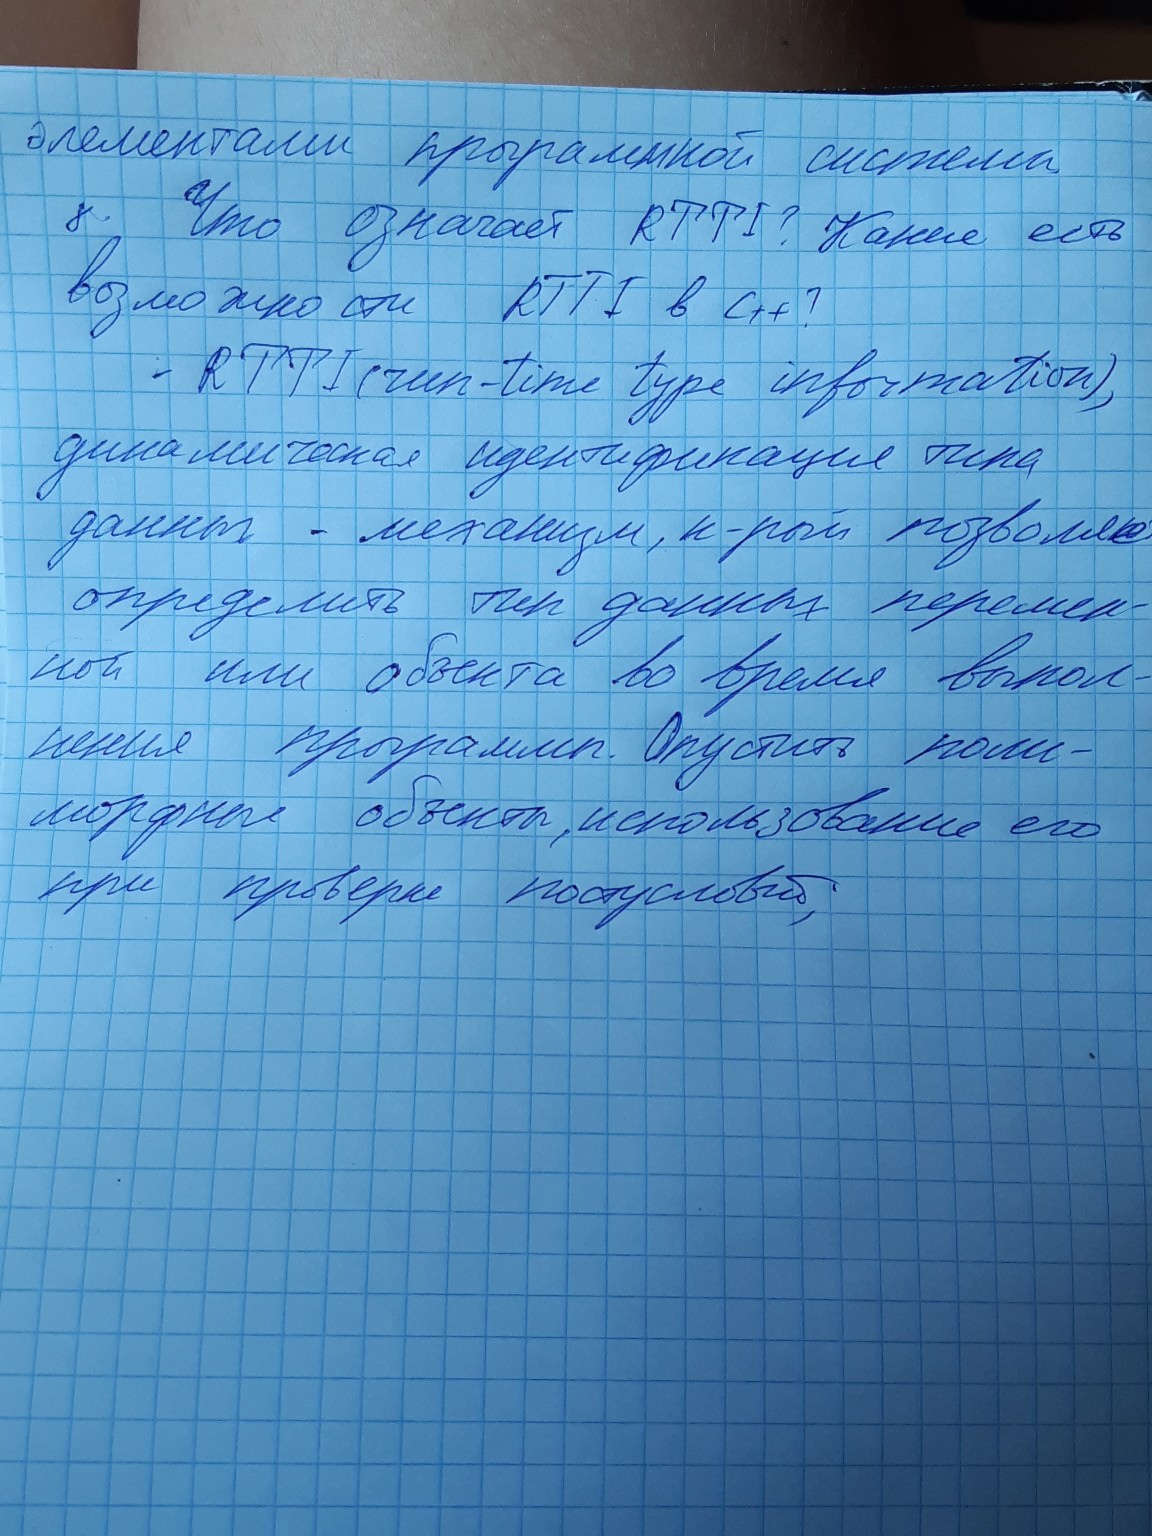 элементами программной системы
8. Что означает RTTI? Какие есть
возможности RTTI в C++?
- RTTI (run-time type information),
динамическая идентификация типа
данных - механизм, к-рый позволяет
определить тип данных перемен-
ной или объекта во время выпол-
нения программы. Опустить поли-
морфные объекты, использование его
при проверке постусловий;